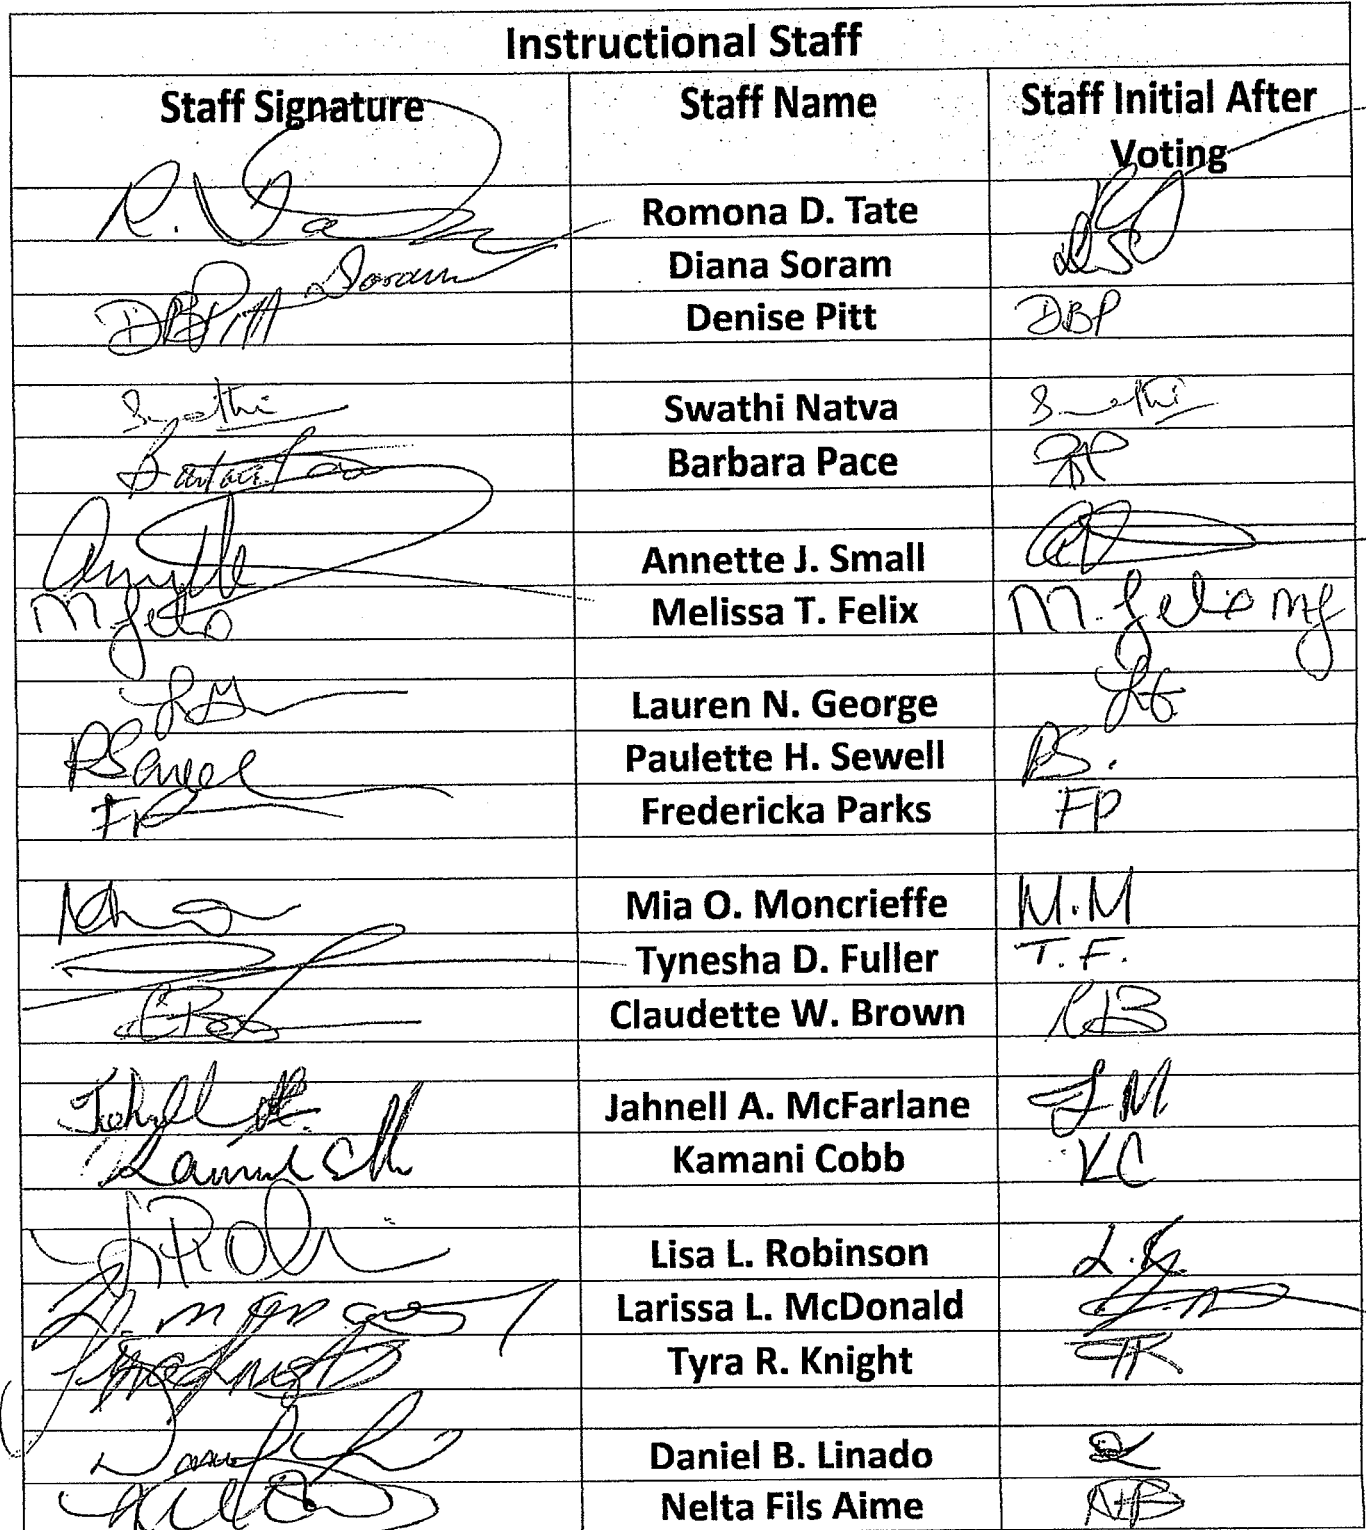 Instructional Staff
Staff Signature Staff Name Staff Initial After
Voting
R. Romona D. Tate
Soram Diana Soram
DBPitt Denise Pitt DBP
Swathi Swathi Natva Swathi
Barbara Barbara Pace BP
Annette Annette J. Small
M Felix Melissa T. Felix M. Felix MF
LG Lauren N. George LG
PSewell Paulette H. Sewell PS.
FP Fredericka Parks FP
Mia O. Moncrieffe M.M
Tynesha D. Fuller T.F.
Claudette W. Brown CB
Jahnell Jahnell A. McFarlane JM
Kamani Cobb KC
Lisa L. Robinson L.R
Larissa L. McDonald
Tyra Knight Tyra R. Knight TK
Daniel B. Linado
Nelta Fils Aime